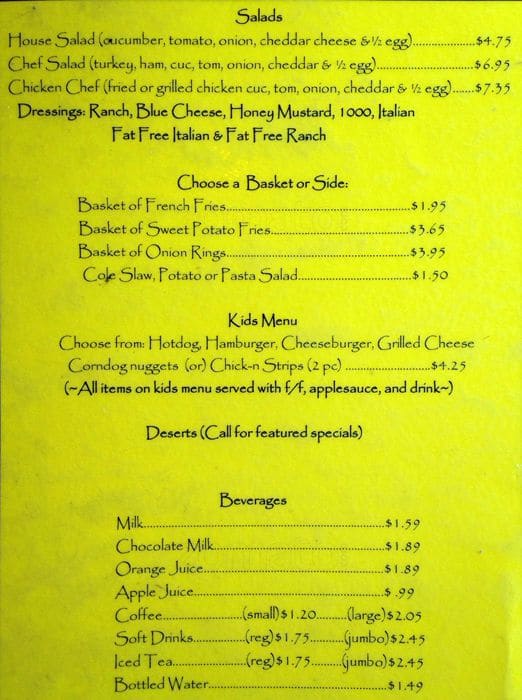 Salads
House Salad (cucumber, tomato, onion, cheddar cheese & ½ egg)..................$4.75
Chef Salad (turkey, ham, cuc, tom, onion, cheddar & ½ egg)..........................$6.95
Chicken Chef (fried or grilled chicken cuc, tom, onion, cheddar & ½ egg)......$7.35
Dressings: Ranch, Blue Cheese, Honey Mustard, 1000, Italian
Fat Free Italian & Fat Free Ranch
Choose a Basket or Side:
Basket of French Fries..................................................$1.95
Basket of Sweet Potato Fries.....................................$3.65
Basket of Onion Rings..................................................$3.95
Cole Slaw, Potato or Pasta Salad..............................$1.50
Kids Menu
Choose from: Hotdog, Hamburger, Cheeseburger, Grilled Cheese
Corndog nuggets (or) Chick-n Strips (2 pc) ........................$4.25
(~All items on kids menu served with f/f, applesauce, and drink~)
Deserts (Call for featured specials)
Beverages
Milk..................................................................$1.59
Chocolate Milk...............................................$1.89
Orange Juice..................................................$1.89
Apple Juice.....................................................$ .99
Coffee................(small)$1.20.........(large)$2.05
Soft Drinks..............(reg)$1.75..........(jumbo)$2.45
Iced Tea...................(reg)$1.75.........(jumbo)$2.45
Bottled Water.................................................$1.49